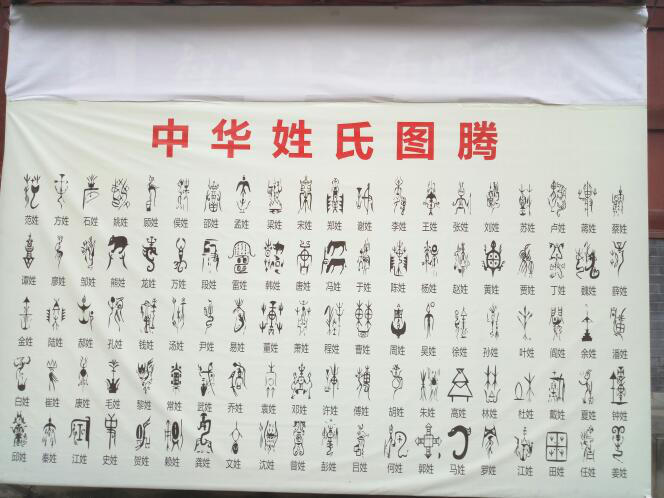 中华姓氏图腾
范姓 方姓 石姓 姚姓 顾姓 侯姓 邵姓 孟姓 梁姓 宋姓 郑姓 谢姓 李姓 王姓 张姓 刘姓 苏姓 卢姓 蒋姓 蔡姓
谭姓 廖姓 邹姓 熊姓 龙姓 万姓 段姓 雷姓 韩姓 唐姓 冯姓 于姓 陈姓 杨姓 赵姓 黄姓 贾姓 丁姓 魏姓 薛姓
金姓 陆姓 郝姓 孔姓 钱姓 汤姓 尹姓 易姓 董姓 萧姓 程姓 曹姓 周姓 吴姓 徐姓 孙姓 叶姓 阎姓 余姓 潘姓
白姓 崔姓 康姓 毛姓 黎姓 常姓 武姓 乔姓 袁姓 邓姓 许姓 傅姓 胡姓 朱姓 高姓 林姓 杜姓 戴姓 夏姓 钟姓
邱姓 秦姓 江姓 史姓 贺姓 赖姓 龚姓 文姓 沈姓 曾姓 彭姓 吕姓 何姓 郭姓 马姓 罗姓 江姓 田姓 任姓 姜姓